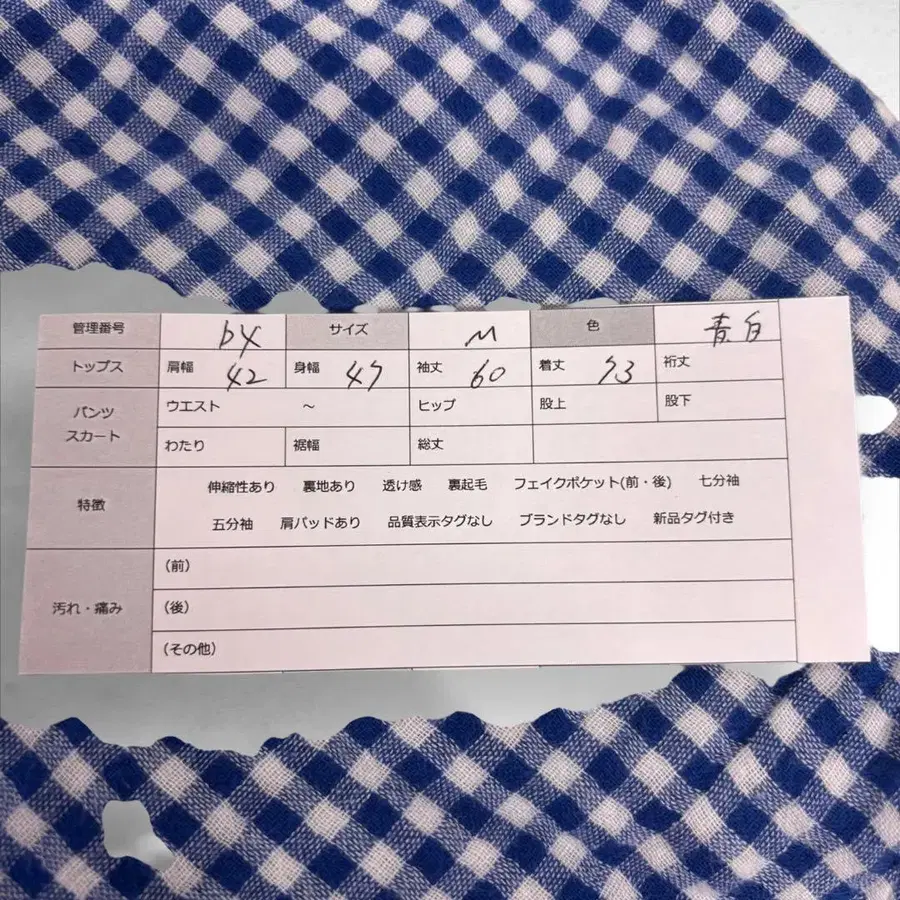 管理番号 b4 サイズ M 色 青白
トップス 肩幅 42 身幅 47 袖丈 60 着丈 73 裄丈
パンツ ウエスト ～ ヒップ 股上 股下
スカート わたり 裾幅 総丈
特徴 伸縮性あり 裏地あり 透け感 裏起毛 フェイクポケット(前・後) 七分袖
五分袖 肩パッドあり 品質表示タグなし ブランドタグなし 新品タグ付き
汚れ・痛み (前)
(後)
(その他)